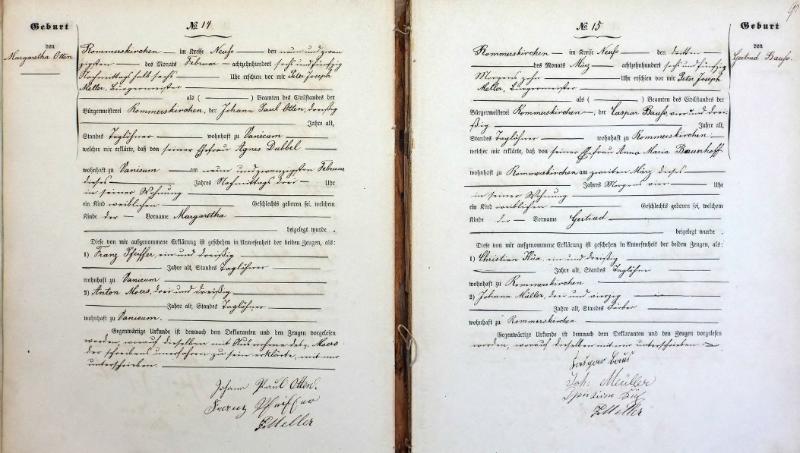 Geburt
von
Margaretha Otten
№ 14.
Rommerskirchen im Kreise Neuss den neun und zwan
zigsten des Monats Februar achtzehnhundert sechs und fünfzig
Nachmittags halb sechs Uhr erschien vor mir Peter Joseph
Meller, Bürgermeister
als ( ) Beamten des Civilstandes der
Bürgermeisterei Rommerskirchen, der Johann Paul Otten, dreißig
Jahre alt,
Standes Taglöhner wohnhaft zu Vanicum
welcher mir erklärte, daß von seiner Ehefrau Agnes Dubbel
wohnhaft zu Vanicum am neun und zwanzigsten Februar
dieses Jahres Nachmittags drei Uhr
in seiner Wohnung
ein Kind weiblichen Geschlechts geboren sei, welchem
Kinde der Vorname Margaretha
beigelegt wurde.
Diese von mir aufgenommene Erklärung ist geschehen in Anwesenheit der beiden Zeugen, als:
1) Franz Pfeiffer, ein und dreißig
Jahre alt, Standes Taglöhner
wohnhaft zu Vanicum
2) Anton Moers, drei und dreißig
Jahre alt, Standes Taglöhner
wohnhaft zu Vanicum.
Gegenwärtige Urkunde ist demnach dem Deklaranten und den Zeugen vorgelesen
worden, worauf dieselben mit Ausnahme des Moers
der schreibens unerfahren zu sein erklärte, mit mir
unterschrieben.
Johann Paul Otten.
Franz Pfeiffer
Meller
Geburt
von
Gertrud Bauss.
№ 15
Rommerskirchen im Kreise Neuss den dritten
des Monats März achtzehnhundert sechs und fünfzig
Morgens zehn Uhr erschien vor mir Peter Joseph
Meller, Bürgermeister
als ( ) Beamten des Civilstandes der
Bürgermeisterei Rommerskirchen, der Caspar Bauss, vier und drei
ßig Jahre alt,
Standes Taglöhner wohnhaft zu Rommerskirchen
welcher mir erklärte, daß von seiner Ehefrau Anna Maria Baumhoff
wohnhaft zu Rommerskirchen am zweiten März dieses
Jahres Morgens vier Uhr
in seiner Wohnung
ein Kind weiblichen Geschlechts geboren sei, welchem
Kinde der Vorname Gertrud
beigelegt wurde.
Diese von mir aufgenommene Erklärung ist geschehen in Anwesenheit der beiden Zeugen, als:
1) Christian ein und dreißig
Jahre alt, Standes Taglöhner
wohnhaft zu Rommerskirchen
2) Johann Müller, drei und
Jahre alt, Standes
wohnhaft zu Rommerskirchen
Gegenwärtige Urkunde ist demnach dem Deklaranten und den Zeugen vorgelesen
worden, worauf dieselben mit mir unterschrieben
Joh. Meüller
Meller